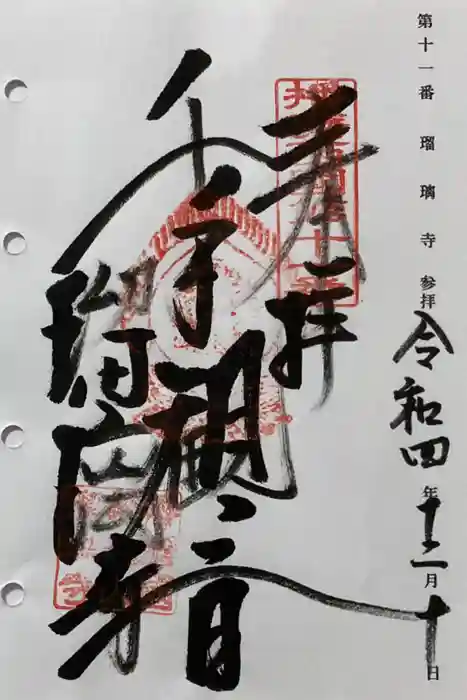 第十一番 瑠璃寺 参拝 令和四年十二月十日
奉拝
千手観音
瑠璃寺